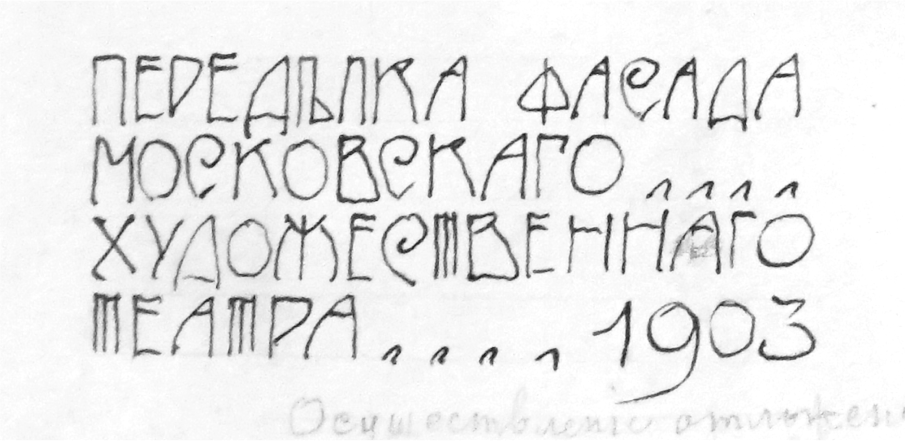 ПЕРЕДѢЛКА ФАСАДА
МОСКОВСКАГО ....
ХУДОЖЕСТВЕННАГО
ТЕАТРА .... 1903
Осуществленіе отложено